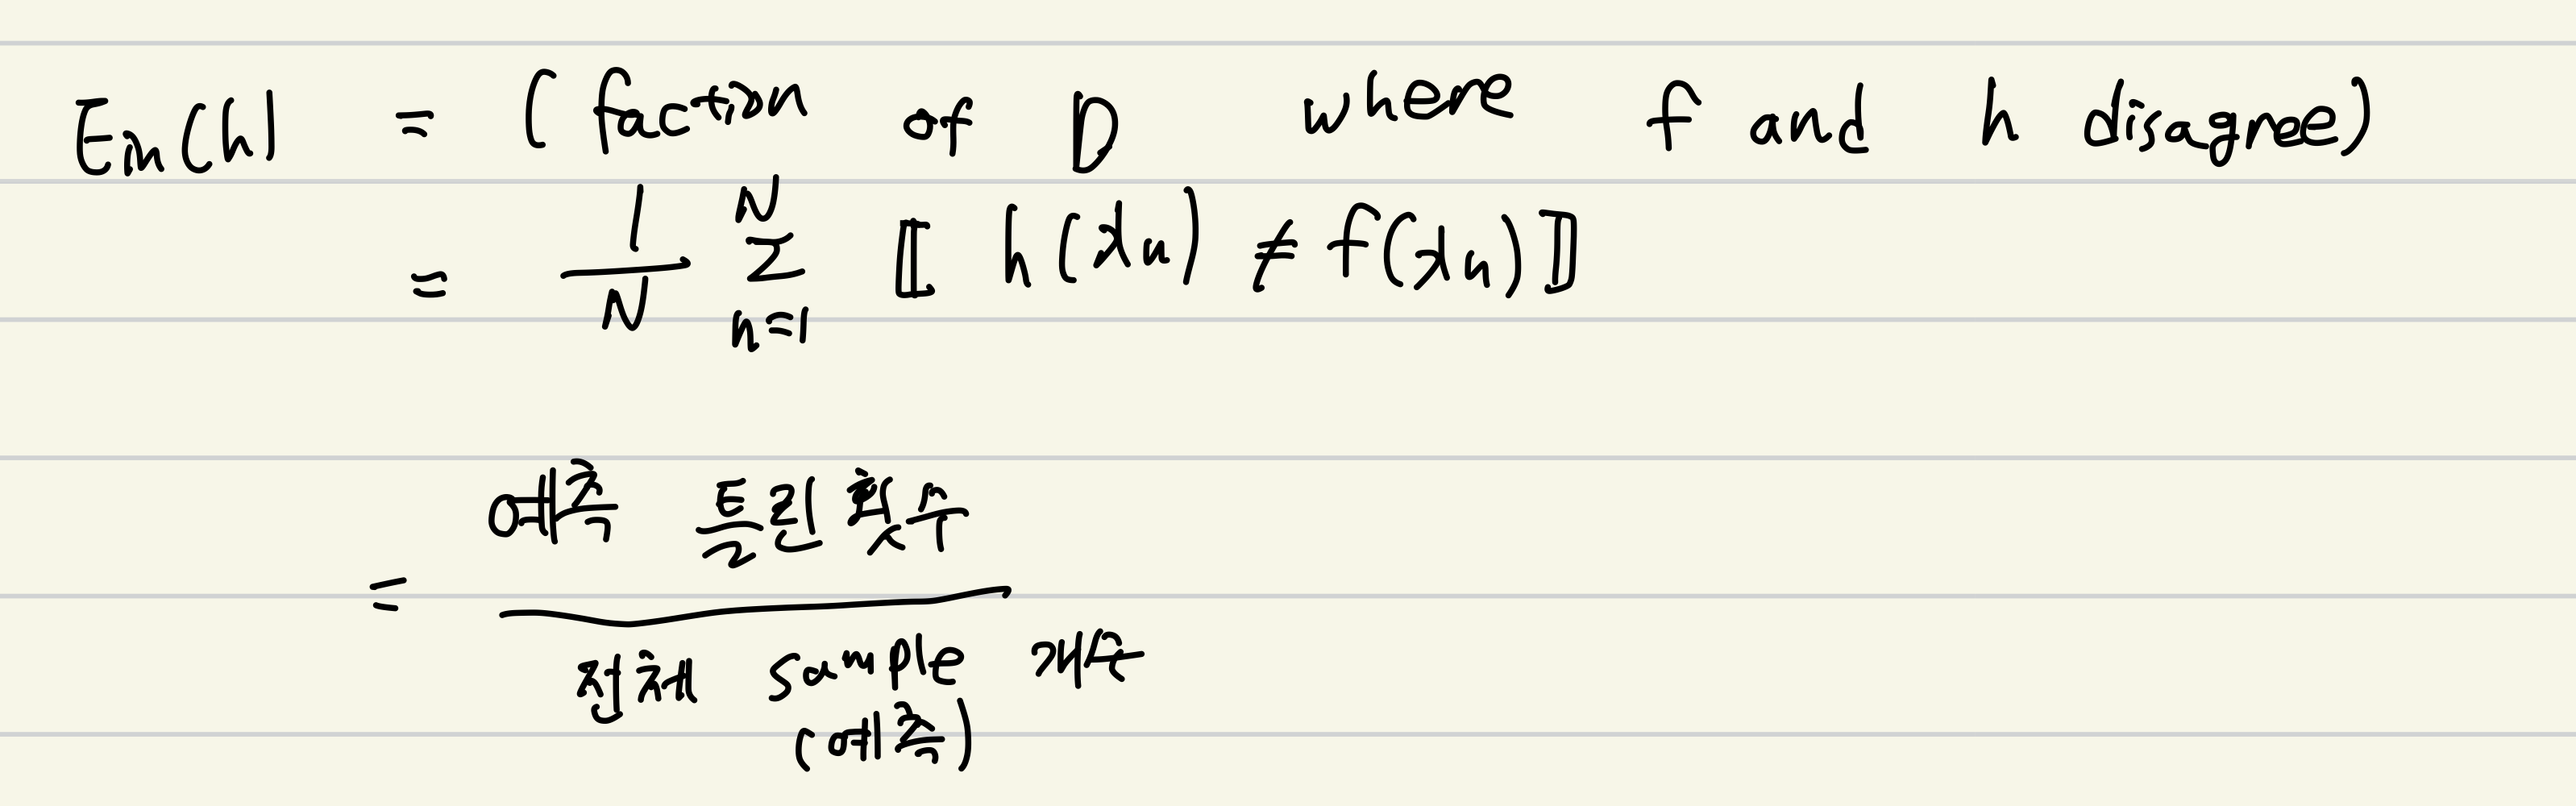 Ein(h) = (faction of D where f and h disagree)
= 1/N Σ_{n=1}^{N} ⟦ h(xn) ≠ f(xn) ⟧
= 예측 틀린 횟수
전체 sample 개수
(예측)